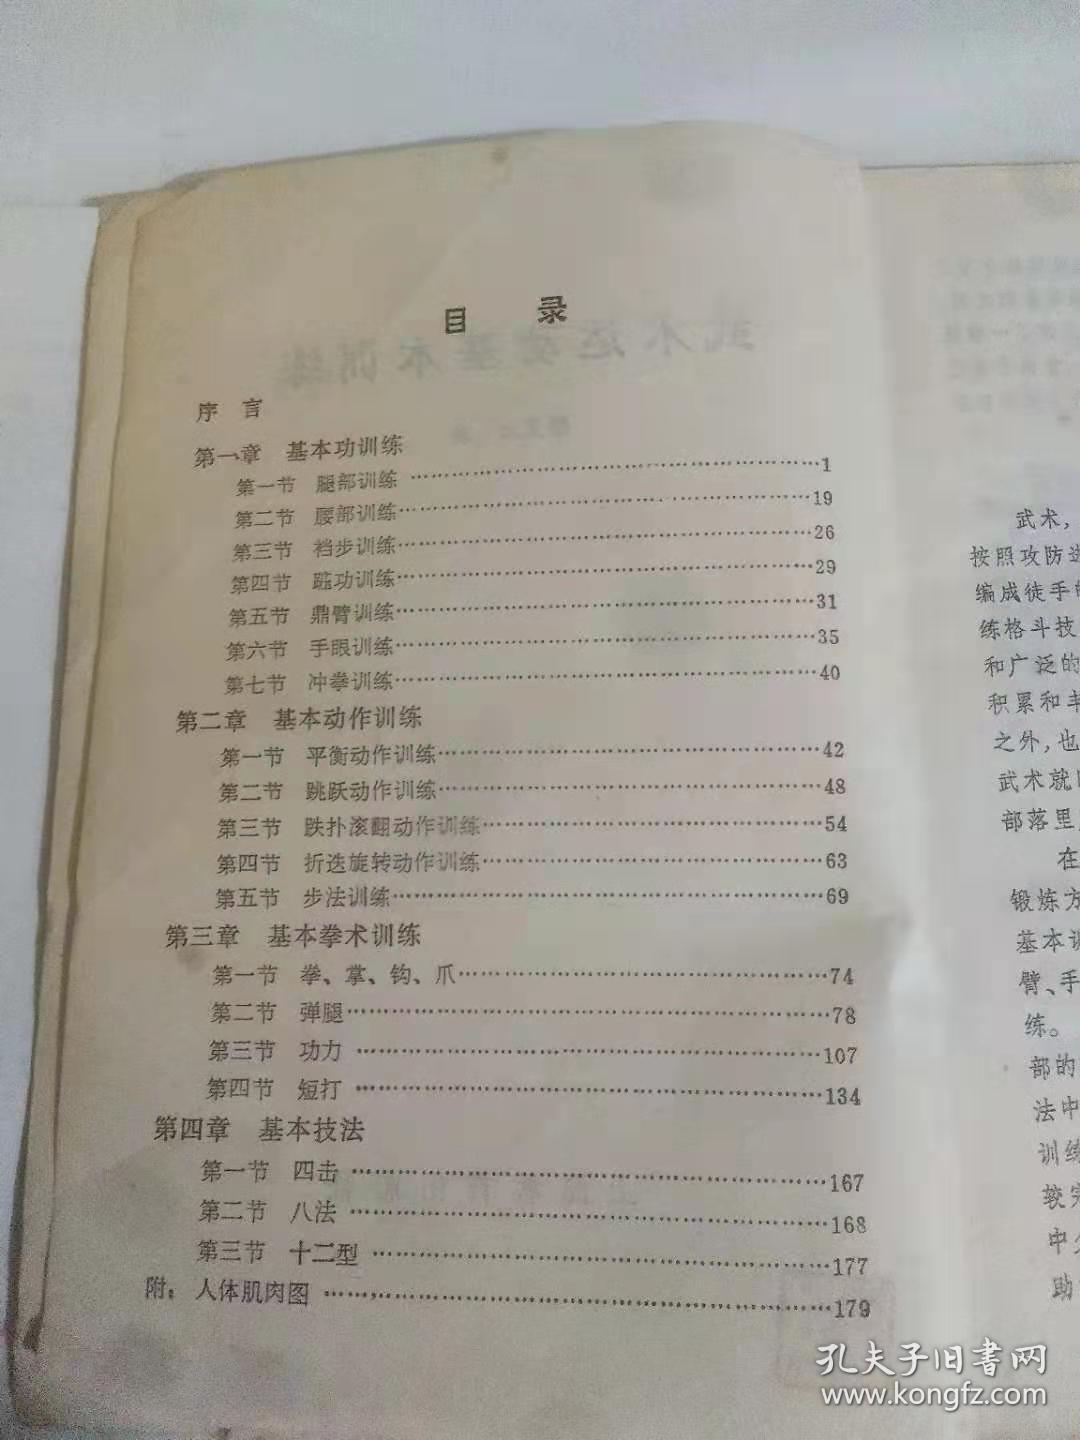 目 录
序 言
第一章 基本功训练
第一节 腿部训练 ……1
第二节 腰部训练……19
第三节 裆步训练……26
第四节 跖功训练……29
第五节 鼎臂训练……31
第六节 手眼训练……35
第七节 冲拳训练……40
第二章 基本动作训练
第一节 平衡动作训练……42
第二节 跳跃动作训练……48
第三节 跌扑滚翻动作训练……54
第四节 折迭旋转动作训练……63
第五节 步法训练……69
第三章 基本拳术训练
第一节 拳、掌、钩、爪……74
第二节 弹腿……78
第三节 功力……107
第四节 短打……134
第四章 基本技法
第一节 四击……167
第二节 八法……168
第三节 十二型……177
附：人体肌肉图……179
武术，
按照攻防
编成徒手
练格斗技
和广泛的
积累和丰
之外，也
武术就
部落里
在
锻炼方
基本训
臂、手
练。
部的
法中
训练
较完
中
助
孔夫子旧书网
www.kongfz.com